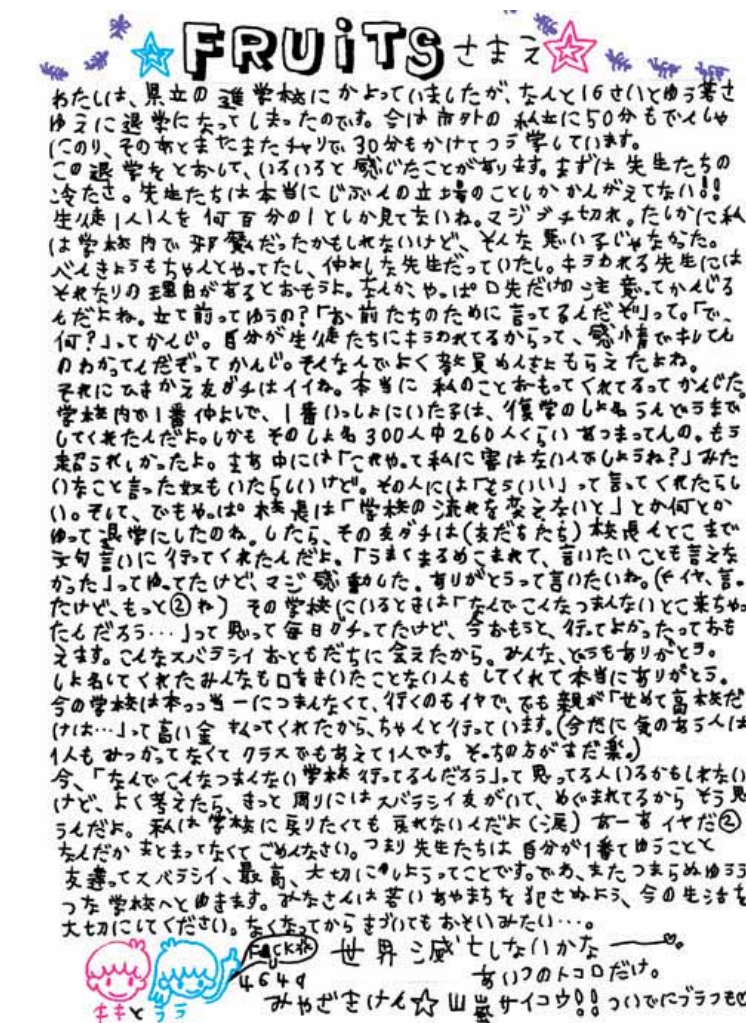 FRUiTSさまえ
わたしは、県立の進学校にかよっていましたが、なんと16さいとゆう若さ
ゆえに退学になってしまったのです。今は市外の私立に50分もでんしゃ
にのり、そのあとまたまたチャリで30分もかけてつう学しています。
この退学をとおして、いろいろと感じたことがあります。まずは先生たちの
冷たさ。先生たちは本当にじぶんの立場のことしかかんがえてない!!
生徒1人1人を何百分の1としか見てないね。マジブチ切れ。たしかに私
は学校内で邪魔だったかもしれないけど、そんな悪い子じゃなかった。
べんきょうもちゃんとやってたし、仲よしな先生だっていたし。キラわれる先生には
それなりの理由があるとおもうよ。なんか、やっぱ口先だけの注意ってかんじる
んだよね。立て前ってゆうの?「お前たちのために言ってるんだぞ」って。「で、
何?」ってかんじ。自分が生徒たちにキラわれてるからって、感情でキレてん
のわかってんだぞってかんじ。そんなんでよく教員めんきょもらえたよね。
それにひきかえ友ダチはイイね。本当に私のことおもってくれてるってかんじた。
学校内で1番仲よしで、1番いっしょにいた子は、復学のしょ名うんどうまで
してくれたんだよ。しかもそのしょ名300人中260人くらいあつまってんの。もう
超うれしかったよ。まあ中には「これやって私に害はないんでしょうね?」みた
いなこと言った奴もいたらしいけど。その人には「もういい」って言ってくれたらし
い。そして、でもやっぱ校長は「学校の流れを変えないと」とか何とか
ゆって退学にしたのね。したら、その友ダチは(友だちたち)校長んとこまで
文句言いに行ってくれたんだよ。「うまくまるめこまれて、言いたいことも言えな
かった」ってゆってたけど、マジ感動した。ありがとうって言いたいね。(イヤ、言っ
たけど、もっと②ね) その学校にいるときは「なんでこんなつまんないとこ来ちゃっ
たんだろう…」って思って毎日グチってたけど、今おもうと、行ってよかったっておも
えます。こんなスバラシイおともだちに会えたから。みんな、どうもありがとう。
しょ名してくれたみんなも口をきいたことない人もしてくれて本当にありがとう。
今の学校は本っっ当ーにつまんなくて、行くのもイヤで、でも親が「せめて高校だ
けは…」って高い金払ってくれたから、ちゃんと行っています。(今だに気のあう人は
1人もみつかってなくてクラスでもあえて1人です。そっちの方がまだ楽。)
今、「なんでこんなつまんない学校行ってるんだろう」って思ってる人いるかもしれない
けど、よく考えたら、きっと周りにはスバラシイ友がいて、めぐまれてるからそう思
うんだよ。私は学校に戻りたくても戻れないんだよ(涙)あーあイヤだ②
なんだかまとまってなくてごめんなさい。つまり先生たちは自分が1番てゆうことと
友達ってスバラシイ、最高、大切にしようってことです。であ、またつまらぬゆうう
つな学校へとゆきます。みなさんは若いあやまちを犯さぬよう、今の生活を
大切にしてください。なくなってからきづいてもおそいみたい…。
F☆CK☆
世界滅亡しないかな
4649
あいつのトコロだけ。
みやざきけん☆山嵐サイコウ!!ついでにブラフも
キキとララ